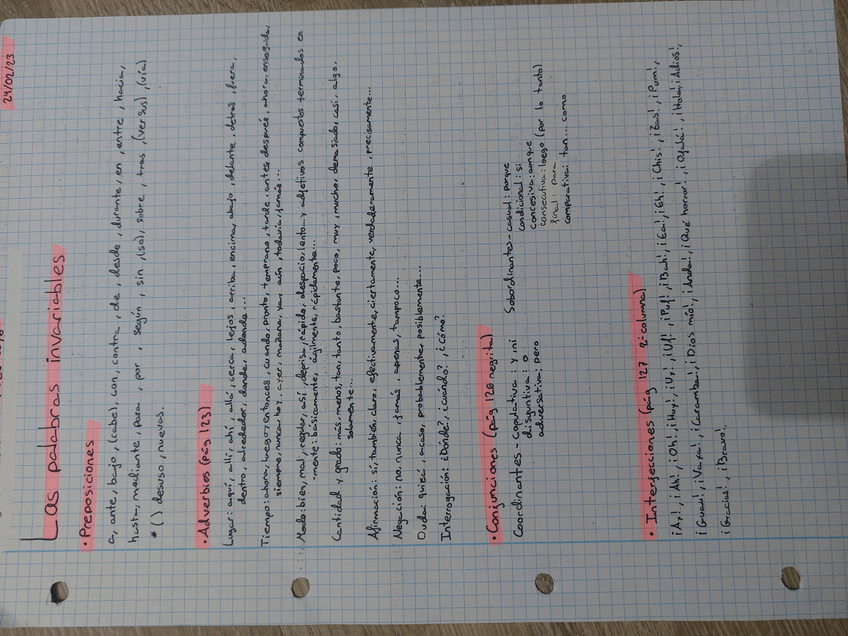 24/02/23
Las palabras invariables
• Preposiciones
a, ante, bajo, (cabe), con, contra, de, desde, durante, en, entre, hacia,
hasta, mediante, para, por, según, sin, (so), sobre, tras, (versus), (vía)
* ( ) desuso, nuevas.
• Adverbios (pág 123)
Lugar: aquí, allí, ahí, allá, cerca, lejos, arriba, encima, abajo, delante, detrás, fuera,
dentro, alrededor, donde, adonde...
Tiempo: ahora, luego, entonces, cuando, pronto, temprano, tarde, antes, después, ahora, enseguida,
siempre, nunca, hoy, ayer, mañana, ya, aún, todavía, jamás...
Modo: bien, mal, regular, así, deprisa, rápido, despacio, lento... y adjetivos compuestos terminados en
-mente: básicamente, ágilmente, rápidamente...
Cantidad y grado: más, menos, tan, tanto, bastante, poco, muy, mucho, demasiado, casi, algo,
solamente...
Afirmación: sí, también, claro, efectivamente, ciertamente, verdaderamente, precisamente...
Negación: no, nunca, jamás, apenas, tampoco...
Duda: quizá, acaso, probablemente, posiblemente...
Interrogación: ¿Dónde?, ¿cuándo?, ¿cómo?
• Conjunciones (pág 126 negrita)
Coordinantes - Copulativa: y, ni
disyuntiva: o
adversativa: pero
Subordinantes - casual: porque
condicional: si
concesiva: aunque
consecutiva: luego (por lo tanto)
final: para
comparativa: tan... como
• Interjecciones (pág 127 2ª columna)
¡Ay!, ¡Ah!, ¡Oh!, ¡Huy!, ¡Uy!, ¡Uf!, ¡Puf!, ¡Bah!, ¡Ea!, ¡Eh!, ¡Chis!, ¡Zas!, ¡Pum!,
¡Guau!, ¡Vaya!, ¡Caramba!, ¡Dios mío!, ¡Anda!, ¡Qué horror!, ¡Ojalá!, ¡Hola!, ¡Adiós!,
¡Gracias!, ¡Bravo!.